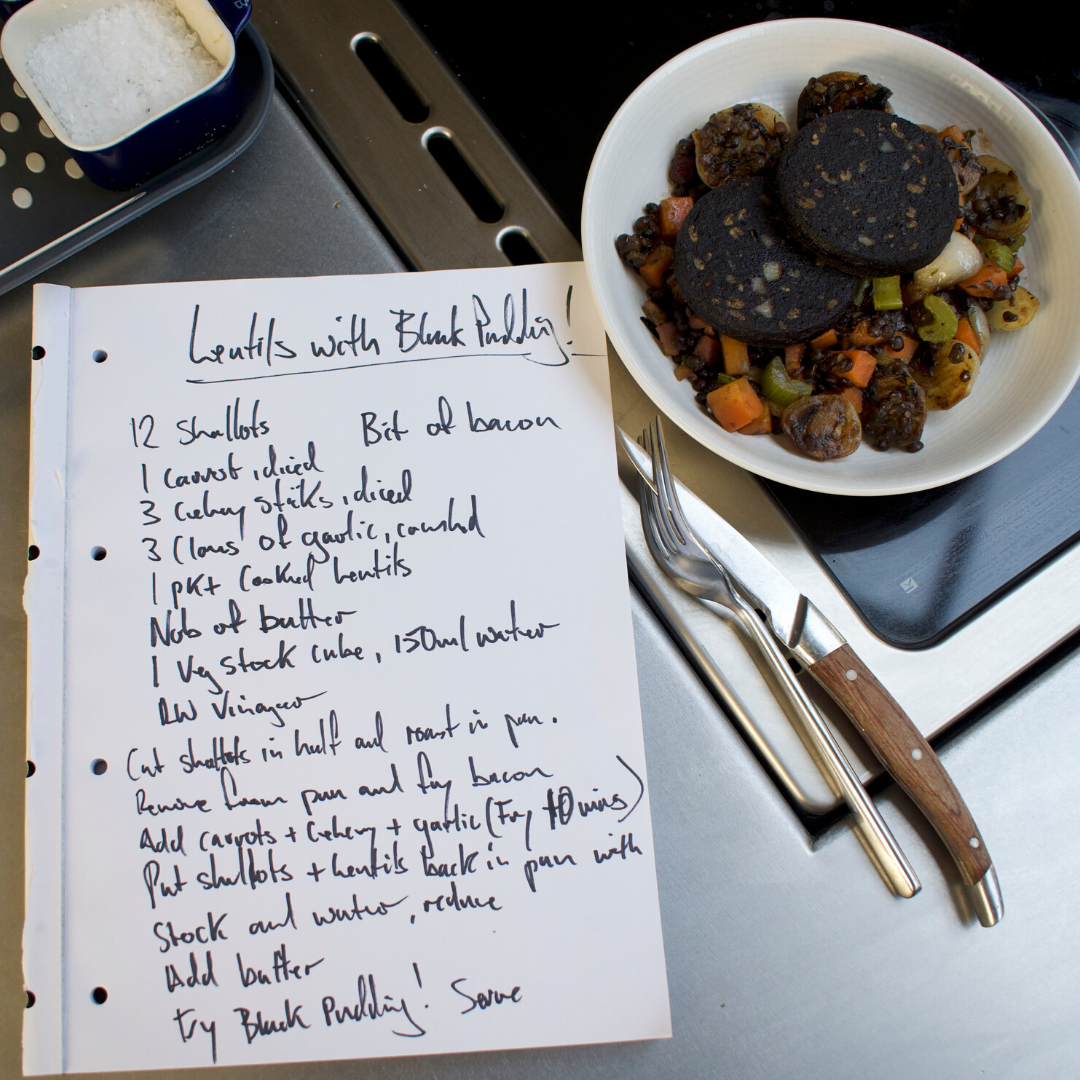 Lentils with Black Pudding!
12 Shallots Bit of bacon
1 Carrot, diced
3 Celery sticks, diced
3 Cloves of garlic, crushed
1 pkt Cooked Lentils
Nob of butter
1 Veg stock cube, 150ml water
RW Vinegar
Cut shallots in half and roast in pan.
Remove from pan and fry bacon
Add carrots + Celery + garlic (Fry 10 mins)
Put shallots + Lentils back in pan with
Stock and water, reduce
Add butter
Fry Black Pudding! Serve